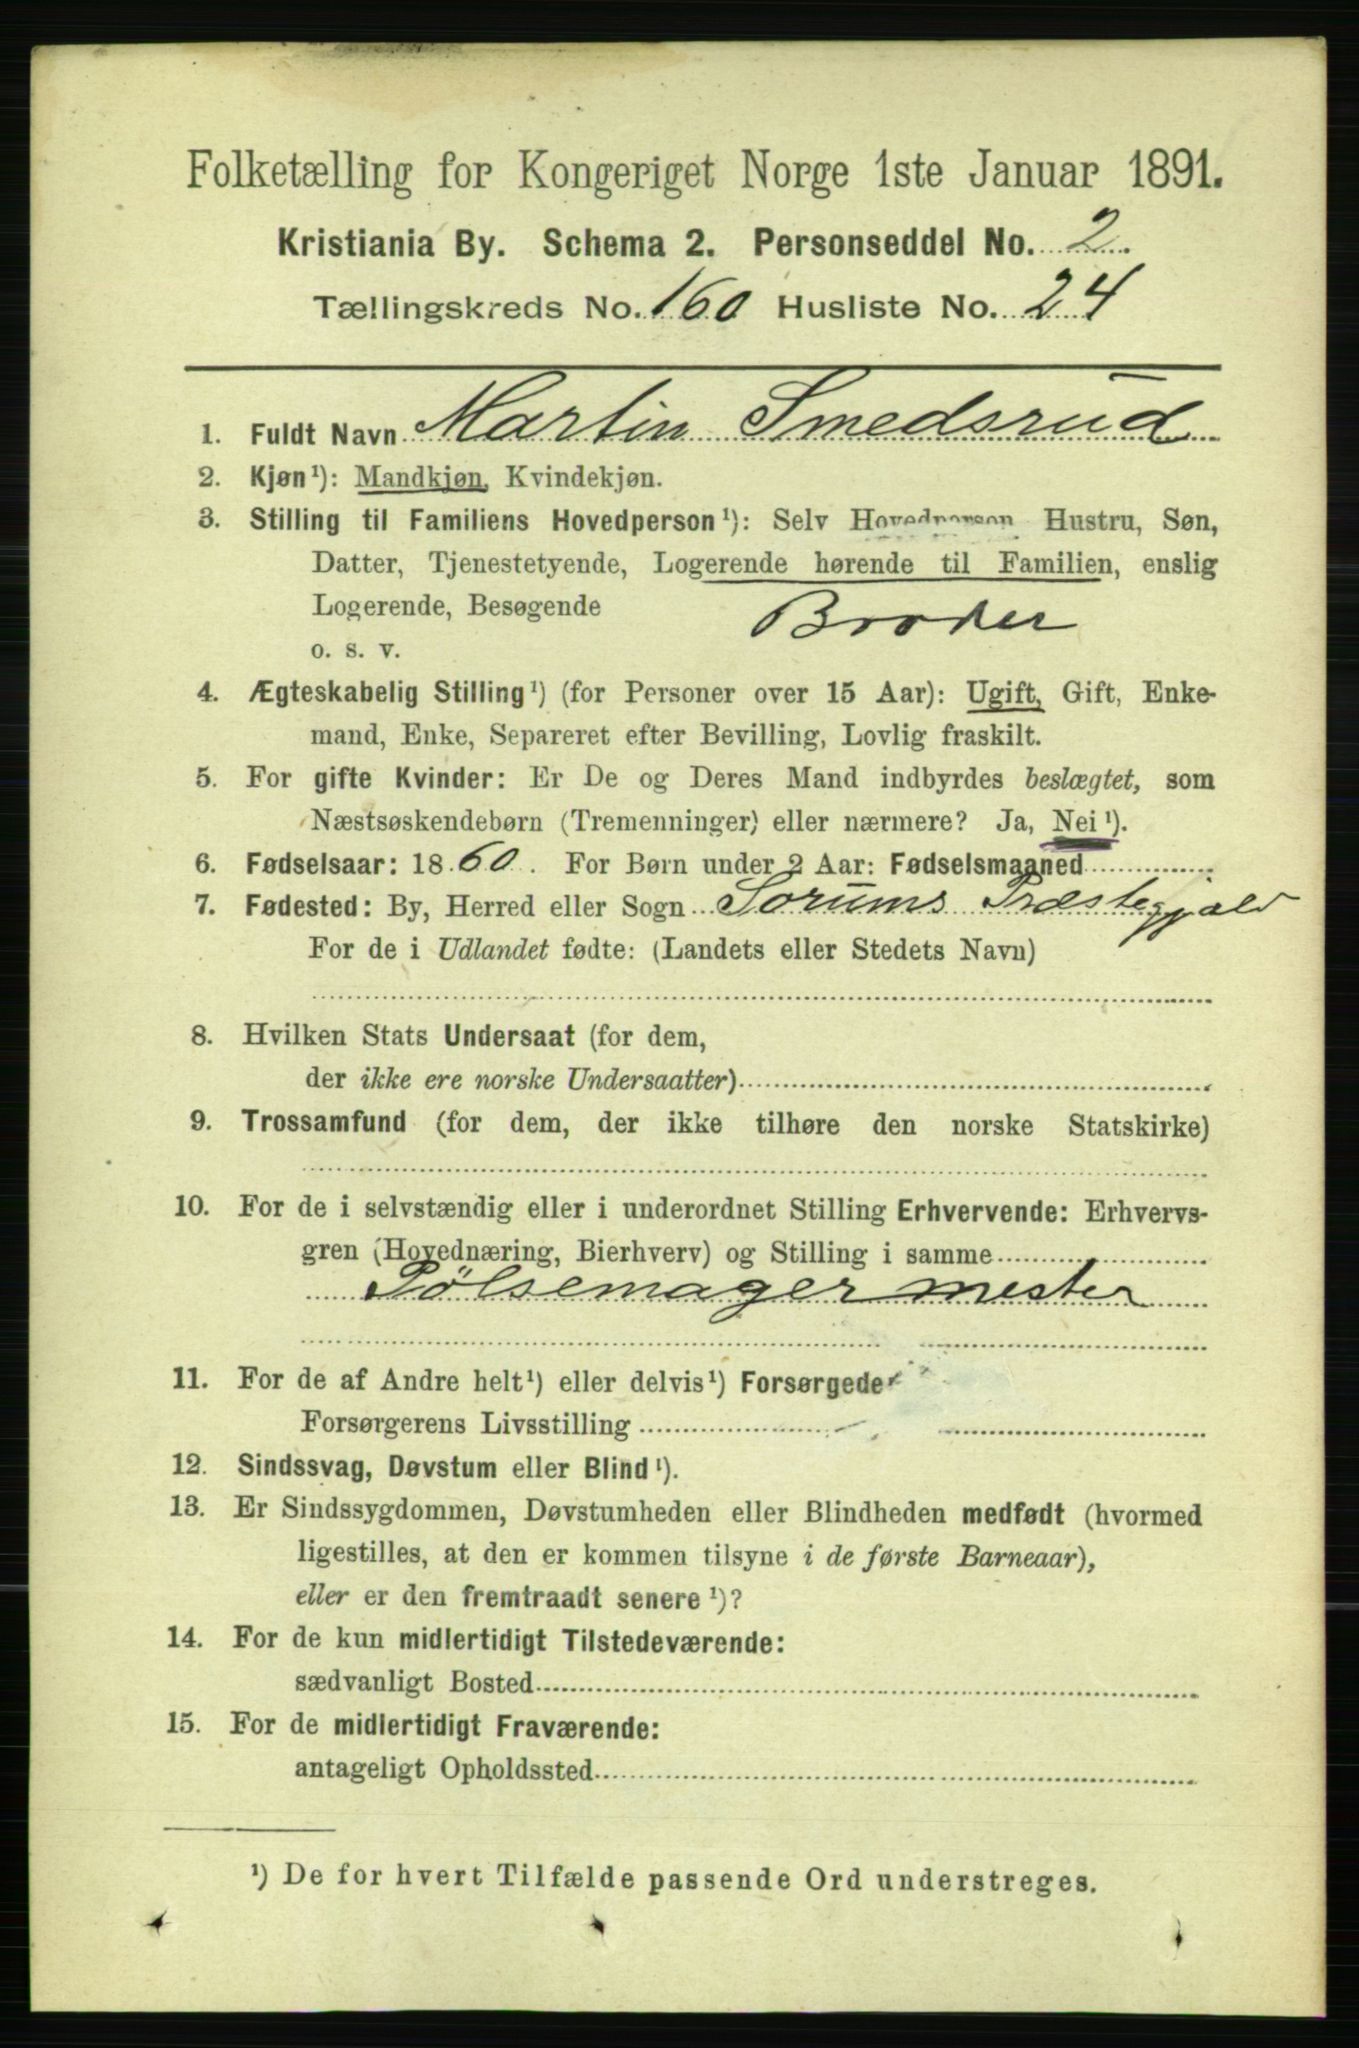 Folketælling for Kongeriget Norge 1ste Januar 1891.
Kristiania By. Schema 2. Personseddel No. 2.
Tællingskreds No. 160 Husliste No. 24
1. Fuldt Navn Martin Smedsrud
2. Kjøn¹): Mandkjøn, Kvindekjøn.
3. Stilling til Familiens Hovedperson¹): Selv Hovedperson Hustru, Søn,
Datter, Tjenestetyende, Logerende hørende til Familien, enslig
Logerende, Besøgende Broder
o. s. v.
4. Ægteskabelig Stilling¹) (for Personer over 15 Aar): Ugift, Gift, Enke-
mand, Enke, Separeret efter Bevilling, Lovlig fraskilt.
5. For gifte Kvinder: Er De og Deres Mand indbyrdes beslægtet, som
Næstsøskendebørn (Tremenninger) eller nærmere? Ja, Nei¹).
6. Fødselsaar: 1860. For Børn under 2 Aar: Fødselsmaaned
7. Fødested: By, Herred eller Sogn Sorums Præstegjæld
For de i Udlandet fødte: (Landets eller Stedets Navn)
8. Hvilken Stats Undersaat (for dem,
der ikke ere norske Undersaatter)
9. Trossamfund (for dem, der ikke tilhøre den norske Statskirke)
10. For de i selvstændig eller i underordnet Stilling Erhvervende: Erhvervs-
gren (Hovednæring, Bierhverv) og Stilling i samme
Pölsemagermester
11. For de af Andre helt¹) eller delvis¹) Forsørgede
Forsørgerens Livsstilling
12. Sindssvag, Døvstum eller Blind¹).
13. Er Sindssygdommen, Døvstumheden eller Blindheden medfødt (hvormed
ligestilles, at den er kommen tilsyne i de første Barneaar),
eller er den fremtraadt senere¹)?
14. For de kun midlertidigt Tilstedeværende:
sædvanligt Bosted
15. For de midlertidigt Fraværende:
antageligt Opholdssted
¹) De for hvert Tilfælde passende Ord understreges.